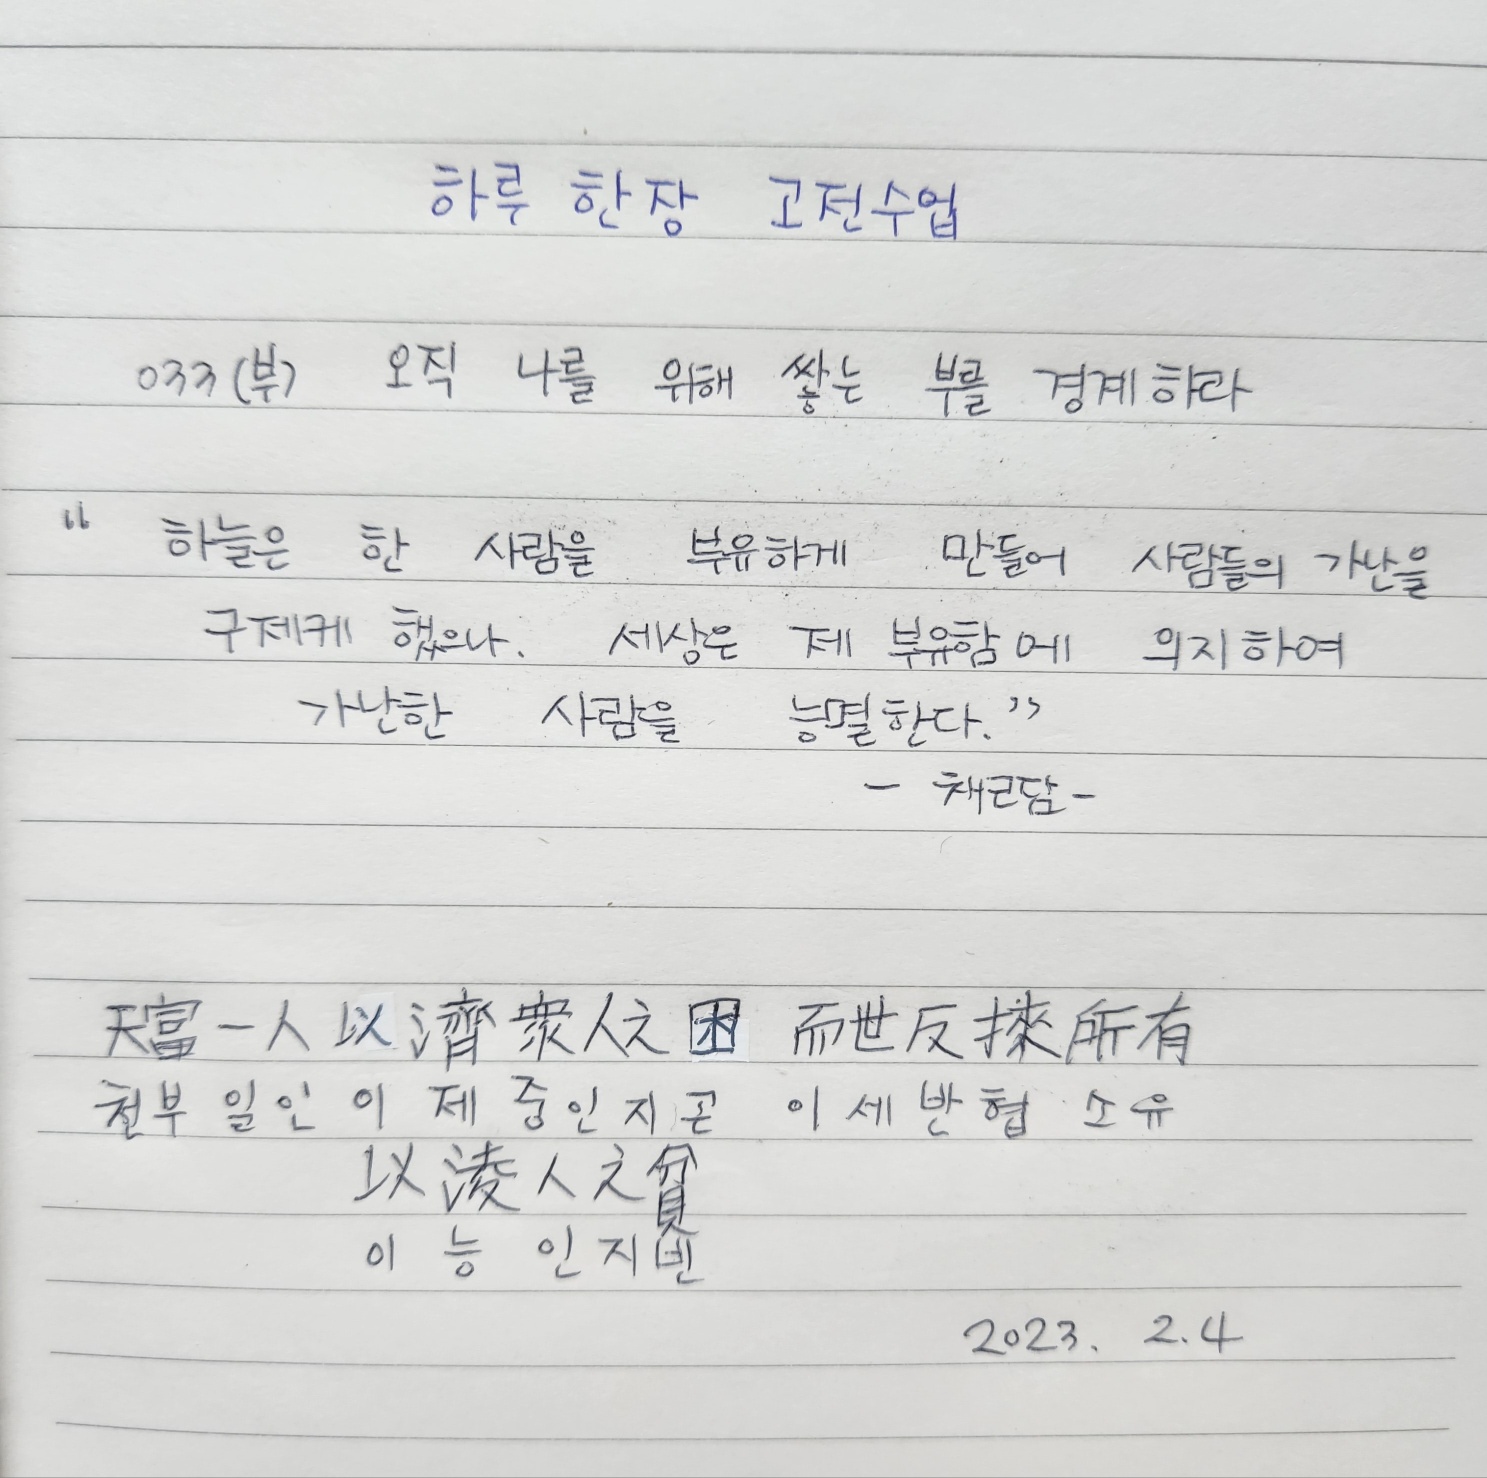 하루 한장 고전수업
033(부) 오직 나를 위해 쌓는 부를 경계하라
“ 하늘은 한 사람을 부유하게 만들어 사람들의 가난을
구제케 했으나. 세상은 제 부유함에 의지하여
가난한 사람을 능멸한다.”
- 채근담 -
天富一人以濟衆人之困 而世反挾所有
천부 일인 이 제 중인지곤 이 세 반 협 소유
以淩人之貧
이 능 인지빈
2023. 2.4